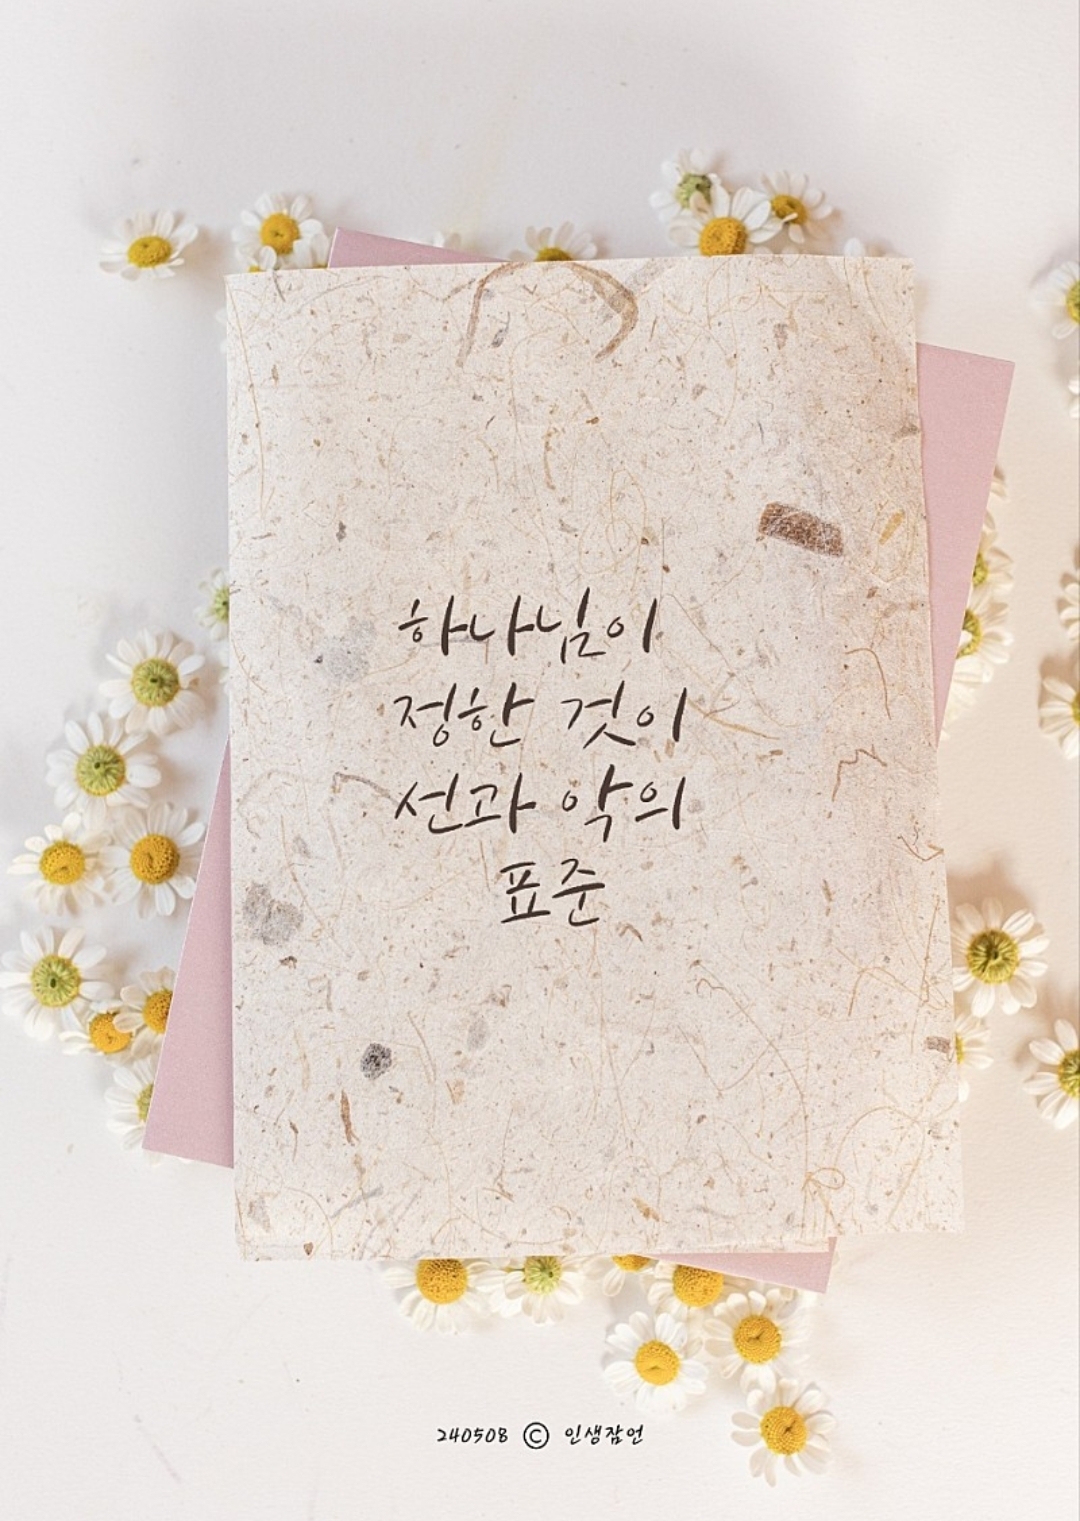 하나님이
정한 것이
선과 악의
표준
240508 © 인생잠언